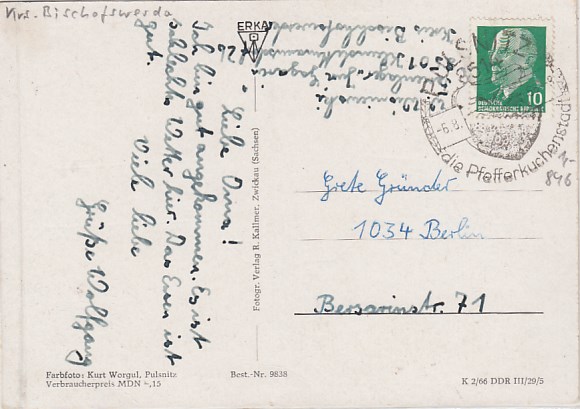 Krs. Bischofswerda
Liebe Oma!
Ich bin gut angekommen. Es ist
schlechtes Wetter hier. Das Essen ist
gut. Viele liebe
Grüße Wolfgang
8501
Kreis Bischofswerda
ERKA
Fotogr. Verlag R. Kallmer, Zwickau (Sachsen)
PULSNITZ
8514
-6.8.
die Pfefferkuchenstadt
DEUTSCHE
DEMOKRATISCHE REPUBLIK
10
A-
846
Grete Gründer
1034 Berlin
Bersarinstr. 71
Farbfoto: Kurt Worgul, Pulsnitz
Verbraucherpreis MDN -,15
Best.-Nr. 9838
K 2/66 DDR III/29/5